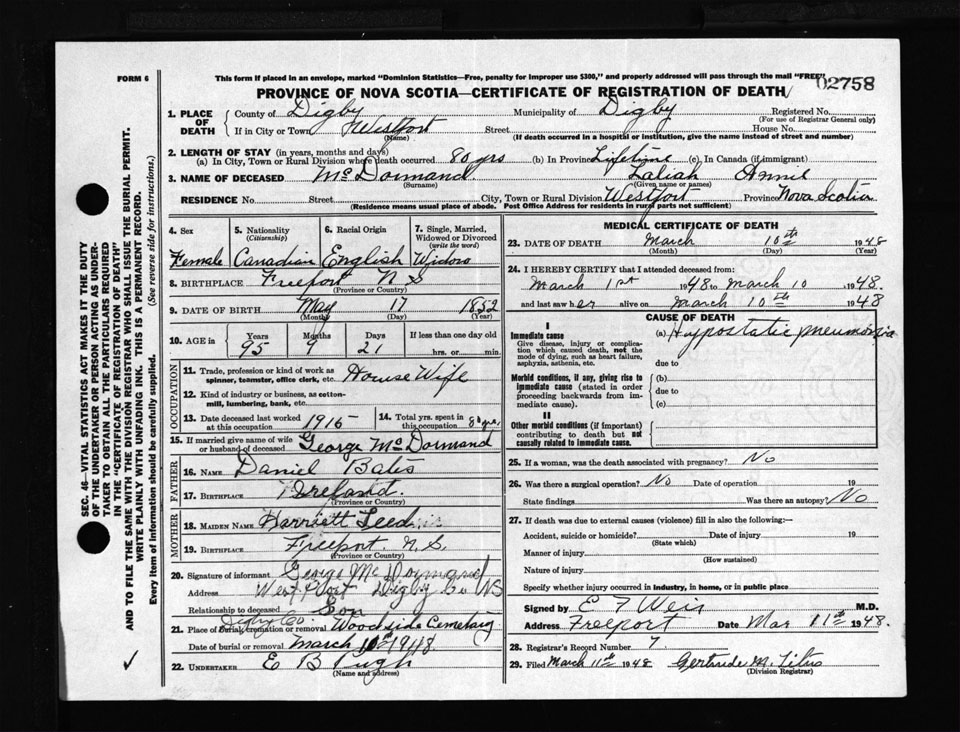 FORM 6
This form if placed in an envelope, marked "Dominion Statistics—Free, penalty for improper use $300," and properly addressed will pass through the mail "FREE"
02758
PROVINCE OF NOVA SCOTIA—CERTIFICATE OF REGISTRATION OF DEATH
1. PLACE OF DEATH
County of Digby Municipality of Digby Registered No.
(For use of Registrar General only)
If in City or Town Westport Street House No.
(Name) (If death occurred in a hospital or institution, give the name instead of street and number)
2. LENGTH OF STAY (in years, months and days)
(a) In City, Town or Rural Division where death occurred 80 yrs (b) In Province Lifetime (c) In Canada (if immigrant)
3. NAME OF DECEASED McDormand Laliah Annie
(Surname) (Given name or names)
RESIDENCE No. Street City, Town or Rural Division Westport Province Nova Scotia
(Residence means usual place of abode. Post Office Address for residents in rural parts not sufficient)
4. Sex
Female
5. Nationality
(Citizenship)
Canadian
6. Racial Origin
English
7. Single, Married, Widowed or Divorced
(write the word)
Widow
8. BIRTHPLACE Freeport N S
(Province or Country)
9. DATE OF BIRTH May 17 1852
(Month) (Day) (Year)
10. AGE in Years Months Days If less than one day old
95 9 21 hrs. or min.
OCCUPATION
11. Trade, profession or kind of work as spinner, teamster, office clerk, etc. House Wife
12. Kind of industry or business, as cotton-mill, lumbering, bank, etc.
13. Date deceased last worked at this occupation 1915
14. Total yrs. spent in this occupation 80 yrs
15. If married give name of wife or husband of deceased George McDormand
FATHER
16. NAME Daniel Bates
17. BIRTHPLACE Ireland.
(Province or Country)
MOTHER
18. MAIDEN NAME Harriett
19. BIRTHPLACE Freeport N.S.
(Province or Country)
20. Signature of informant George McDormand
Address Westport Digby Co NS
Relationship to deceased Son
21. Place of burial, cremation or removal Digby Co. Woodside Cemetary
Date of burial or removal March 1948
22. UNDERTAKER E B Pugh
(Name and address)
MEDICAL CERTIFICATE OF DEATH
23. DATE OF DEATH March 10th 1948
(Month) (Day) (Year)
24. I HEREBY CERTIFY that I attended deceased from
March 1st 1948 to March 10 1948.
and last saw her alive on March 10th 1948
CAUSE OF DEATH
I
Immediate cause
Give disease, injury or complication which caused death, not the mode of dying, such as heart failure, asphyxia, asthenia, etc.
(a) Hypostatic pneumonia
due to
Morbid conditions, if any, giving rise to immediate cause (stated in order proceeding backwards from immediate cause).
(b)
due to
(c)
II
Other morbid conditions (if important) contributing to death but not causally related to immediate cause.
25. If a woman, was the death associated with pregnancy? No
26. Was there a surgical operation? No Date of operation 19
State findings Was there an autopsy? No
27. If death was due to external causes (violence) fill in also the following:—
Accident, suicide or homicide? Date of injury 19
(State which)
Manner of injury
(How sustained)
Nature of injury
Specify whether injury occurred in industry, in home, or in public place
Signed by E F Weir M.D.
Address Freeport Date Mar 11th 1948.
28. Registrar's Record Number 7
29. Filed March 11th 1948 Gertrude M. Titus
(Division Registrar)
SEC. 46—VITAL STATISTICS ACT MAKES IT THE DUTY
OF THE UNDERTAKER OR PERSON ACTING AS UNDER-
TAKER TO OBTAIN ALL THE PARTICULARS REQUIRED
IN THE "CERTIFICATE OF REGISTRATION OF DEATH"
AND TO FILE THE SAME WITH THE DIVISION REGISTRAR WHO SHALL ISSUE THE BURIAL PERMIT.
WRITE PLAINLY WITH UNFADING INK. THIS IS A PERMANENT RECORD.
Every item of information should be carefully supplied. (See reverse side for instructions.)